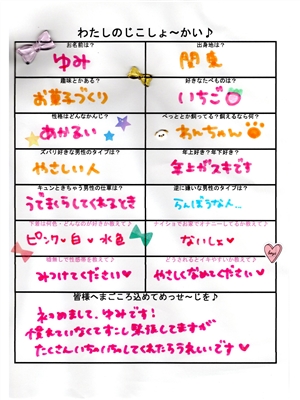 わたしのじこしょ～かい♪
お名前は？
出身地は？
ゆみ
関東
趣味とかある？
好きなたべものは？
お菓子づくり
いちご
性格はどんなかんじ？
ぺっととか飼ってる？飼えるなら何？
あかるい
わんちゃん
ズバリ好きな男性のタイプは？
年上好き？年下好き？
やさしい人
年上がスキです
キュンときちゃう男性の仕草は？
逆に嫌いな男性のタイプは？
うでまくらしてくれるとき
らんぼうな人…
下着は何色・どんなのが好きか教えて♪
ナイショでお家でオナニーしてるか教えて♪
ピンク♥白♥水色
ないしょ♥
で性感帯を教えて♪
どうされるとイキやすいか教えて♪
みつけてください♥
やさしくなめてください♥
皆様へまごころ込めてめっせ～じを♪
初めまして、ゆみです！
慣れていなくてすこし緊張してますが
たくさんいちゃいちゃしてくれたらうれしいです♥